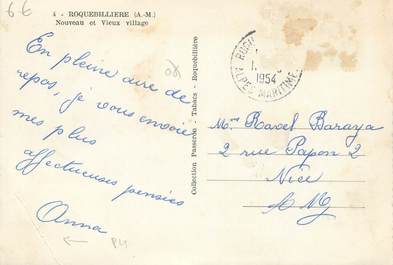 66
4 - ROQUEBILLIERE (A.-M.)
Nouveau et Vieux village
En pleine aire de
repos, je vous envoie
mes plus
affectueuses pensées
Anna
Collection Passeron - Tabacs - Roquebillière
1954
ALPES MARITIMES
Mme Ravel Baraya
2 rue Papon 2
Nice
A M